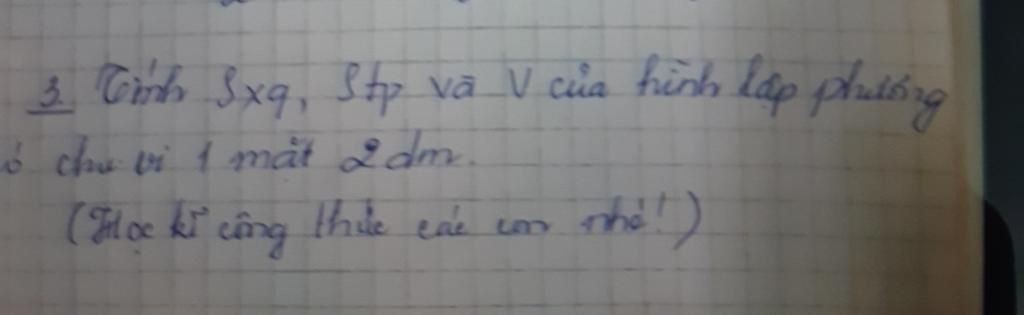 3 Tính Sxq, Stp và V của hình lập phương
ó chu vi 1 mặt 2dm.
(Học kĩ công thức các con nhé!)